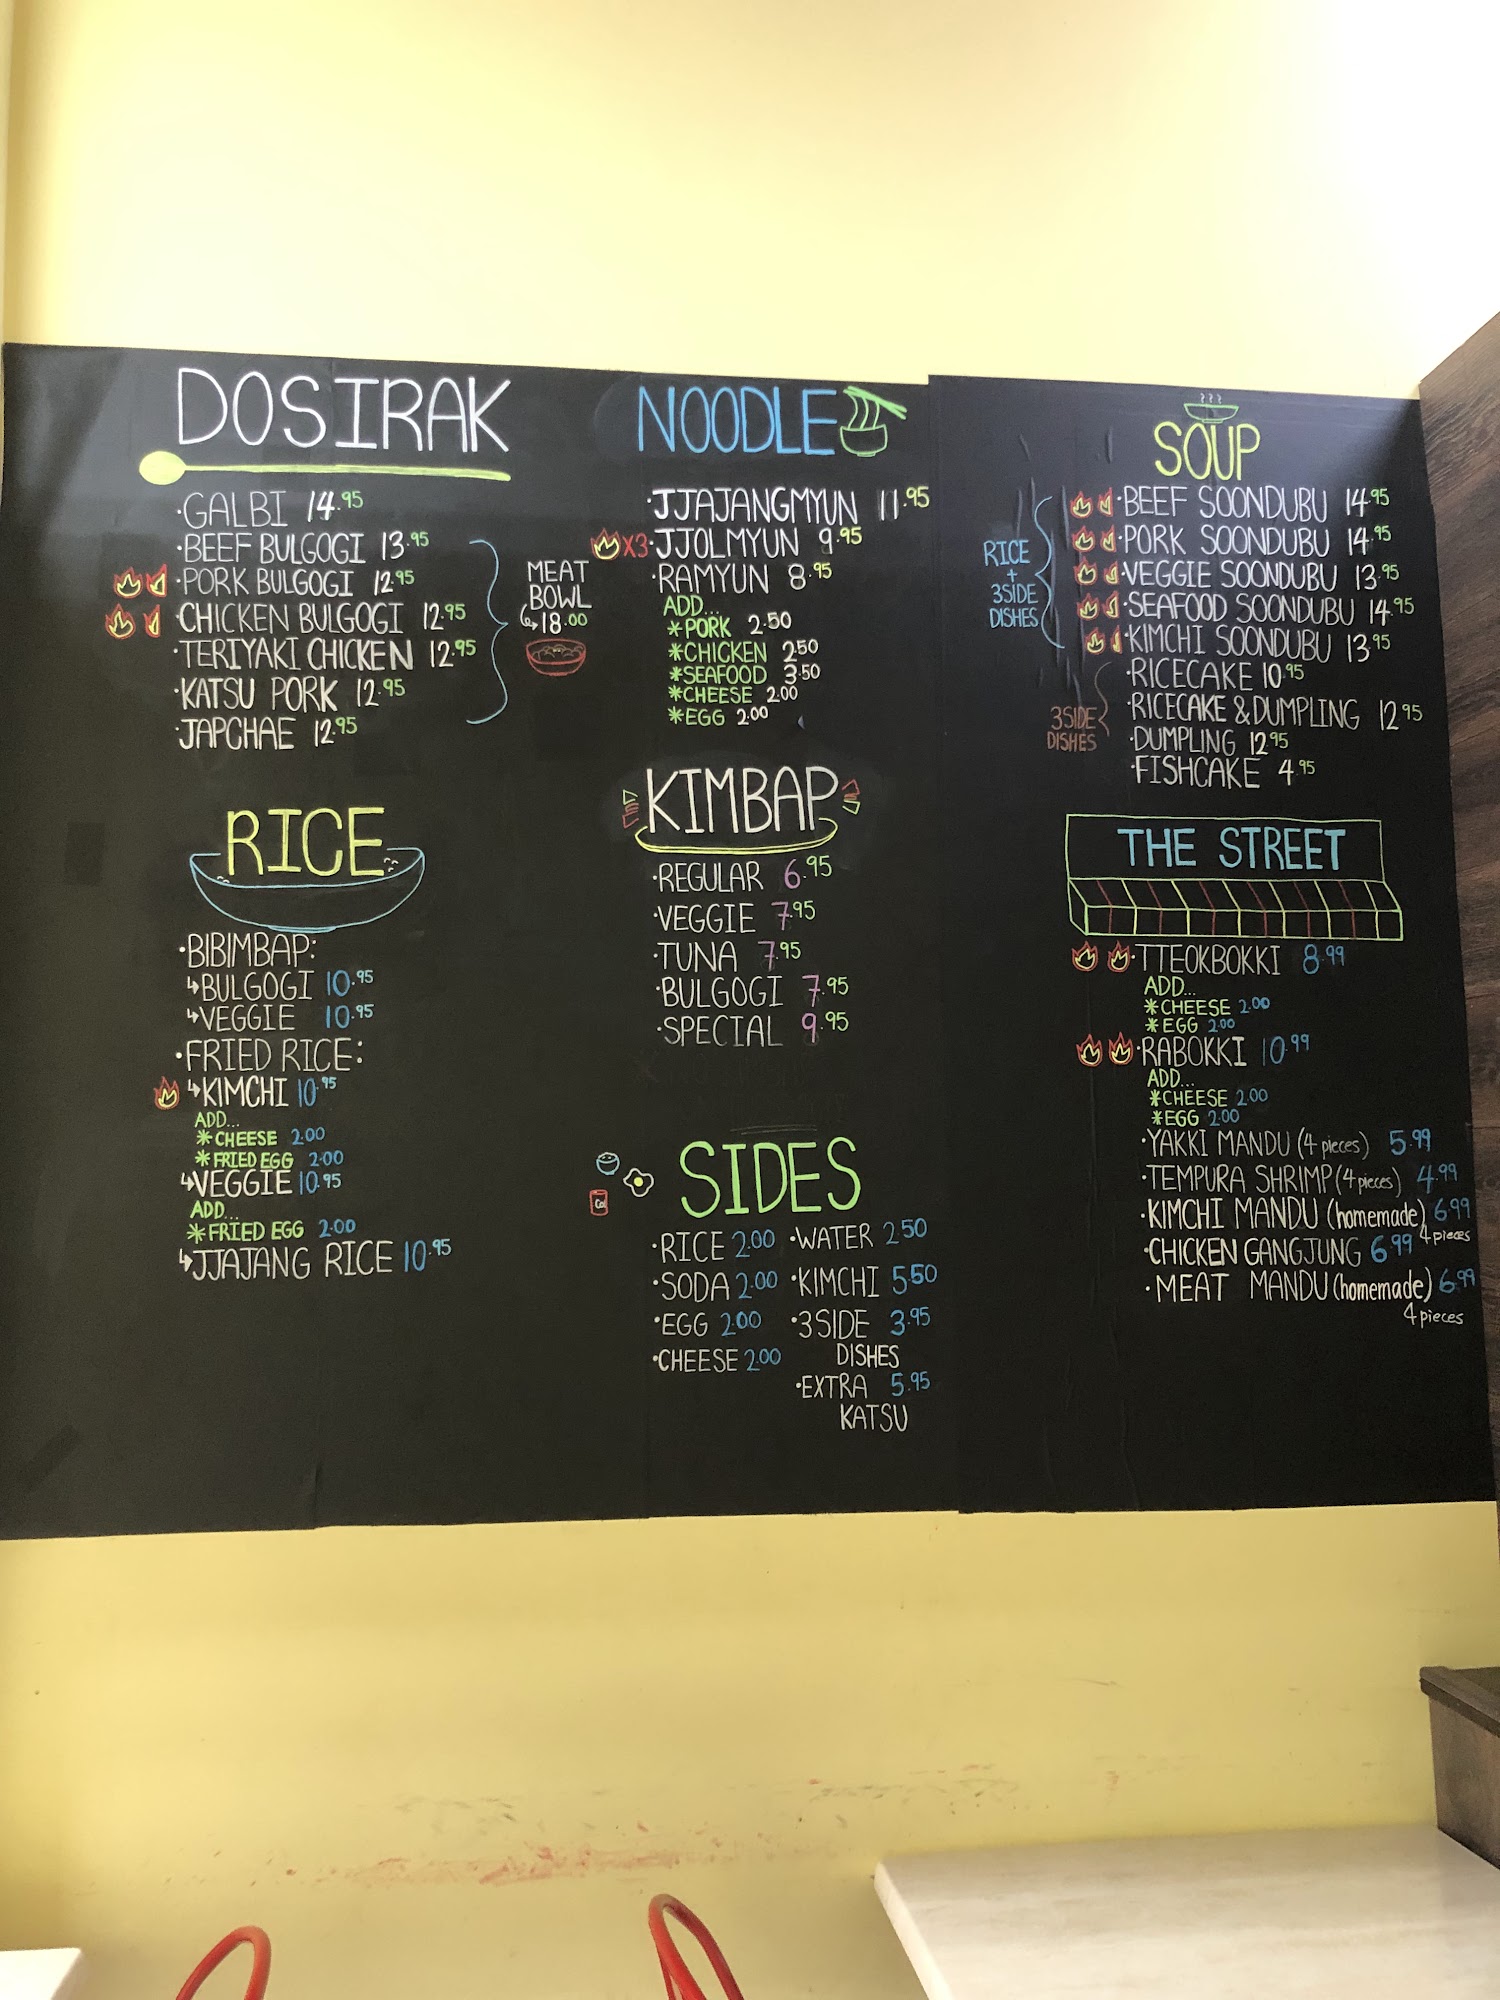 DOSIRAK
·GALBI 14.95
·BEEF BULGOGI 13.95
·PORK BULGOGI 12.95
·CHICKEN BULGOGI 12.95
·TERIYAKI CHICKEN 12.95
·KATSU PORK 12.95
·JAPCHAE 12.95
MEAT
BOWL
↳18.00
RICE
·BIBIMBAP:
↳BULGOGI 10.95
↳VEGGIE 10.95
·FRIED RICE:
↳KIMCHI 10.95
ADD...
*CHEESE 2.00
*FRIED EGG 2.00
↳VEGGIE 10.95
ADD...
*FRIED EGG 2.00
↳JJAJANG RICE 10.95
NOODLE
·JJAJANGMYUN 11.95
X3·JJOLMYUN 9.95
·RAMYUN 8.95
ADD...
*PORK 2.50
*CHICKEN 2.50
*SEAFOOD 3.50
*CHEESE 2.00
*EGG 2.00
KIMBAP
·REGULAR 6.95
·VEGGIE 7.95
·TUNA 7.95
·BULGOGI 7.95
·SPECIAL 9.95
SIDES
·RICE 2.00
·SODA 2.00
·EGG 2.00
·CHEESE 2.00
·WATER 2.50
·KIMCHI 5.50
·3SIDE 3.95
DISHES
·EXTRA 5.95
KATSU
SOUP
·BEEF SOONDUBU 14.95
·PORK SOONDUBU 14.95
·VEGGIE SOONDUBU 13.95
·SEAFOOD SOONDUBU 14.95
·KIMCHI SOONDUBU 13.95
RICE
+
3SIDE
DISHES
·RICECAKE 10.95
·RICECAKE & DUMPLING 12.95
·DUMPLING 12.95
·FISHCAKE 4.95
3SIDE
DISHES
THE STREET
·TTEOKBOKKI 8.99
ADD...
*CHEESE 2.00
*EGG 2.00
·RABOKKI 10.99
ADD...
*CHEESE 2.00
*EGG 2.00
·YAKKI MANDU (4 pieces) 5.99
·TEMPURA SHRIMP (4 pieces) 4.99
·KIMCHI MANDU (homemade) 6.99
4 pieces
·CHICKEN GANGJUNG 6.99
·MEAT MANDU (homemade) 6.99
4 pieces